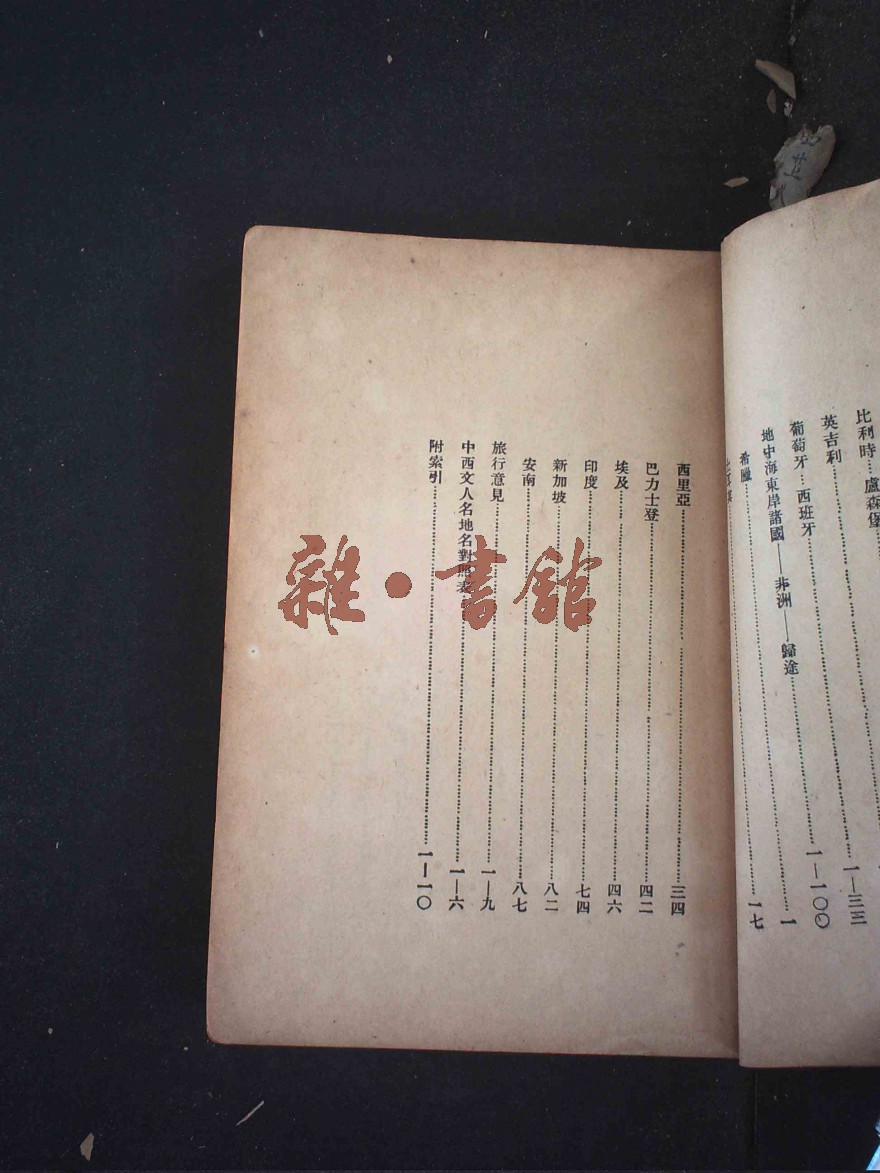 比利時 盧森堡
英吉利 一—三三
葡萄牙 西班牙 一—一〇〇
地中海東岸諸國——非洲——歸途 一
希臘 一七
西里亞 三四
巴力士登 四二
埃及 四六
印度 七四
新加坡 八二
安南 八七
旅行意見 一—九
中西文人名地名對照表 一—六
附索引 一—一〇
雜·書館